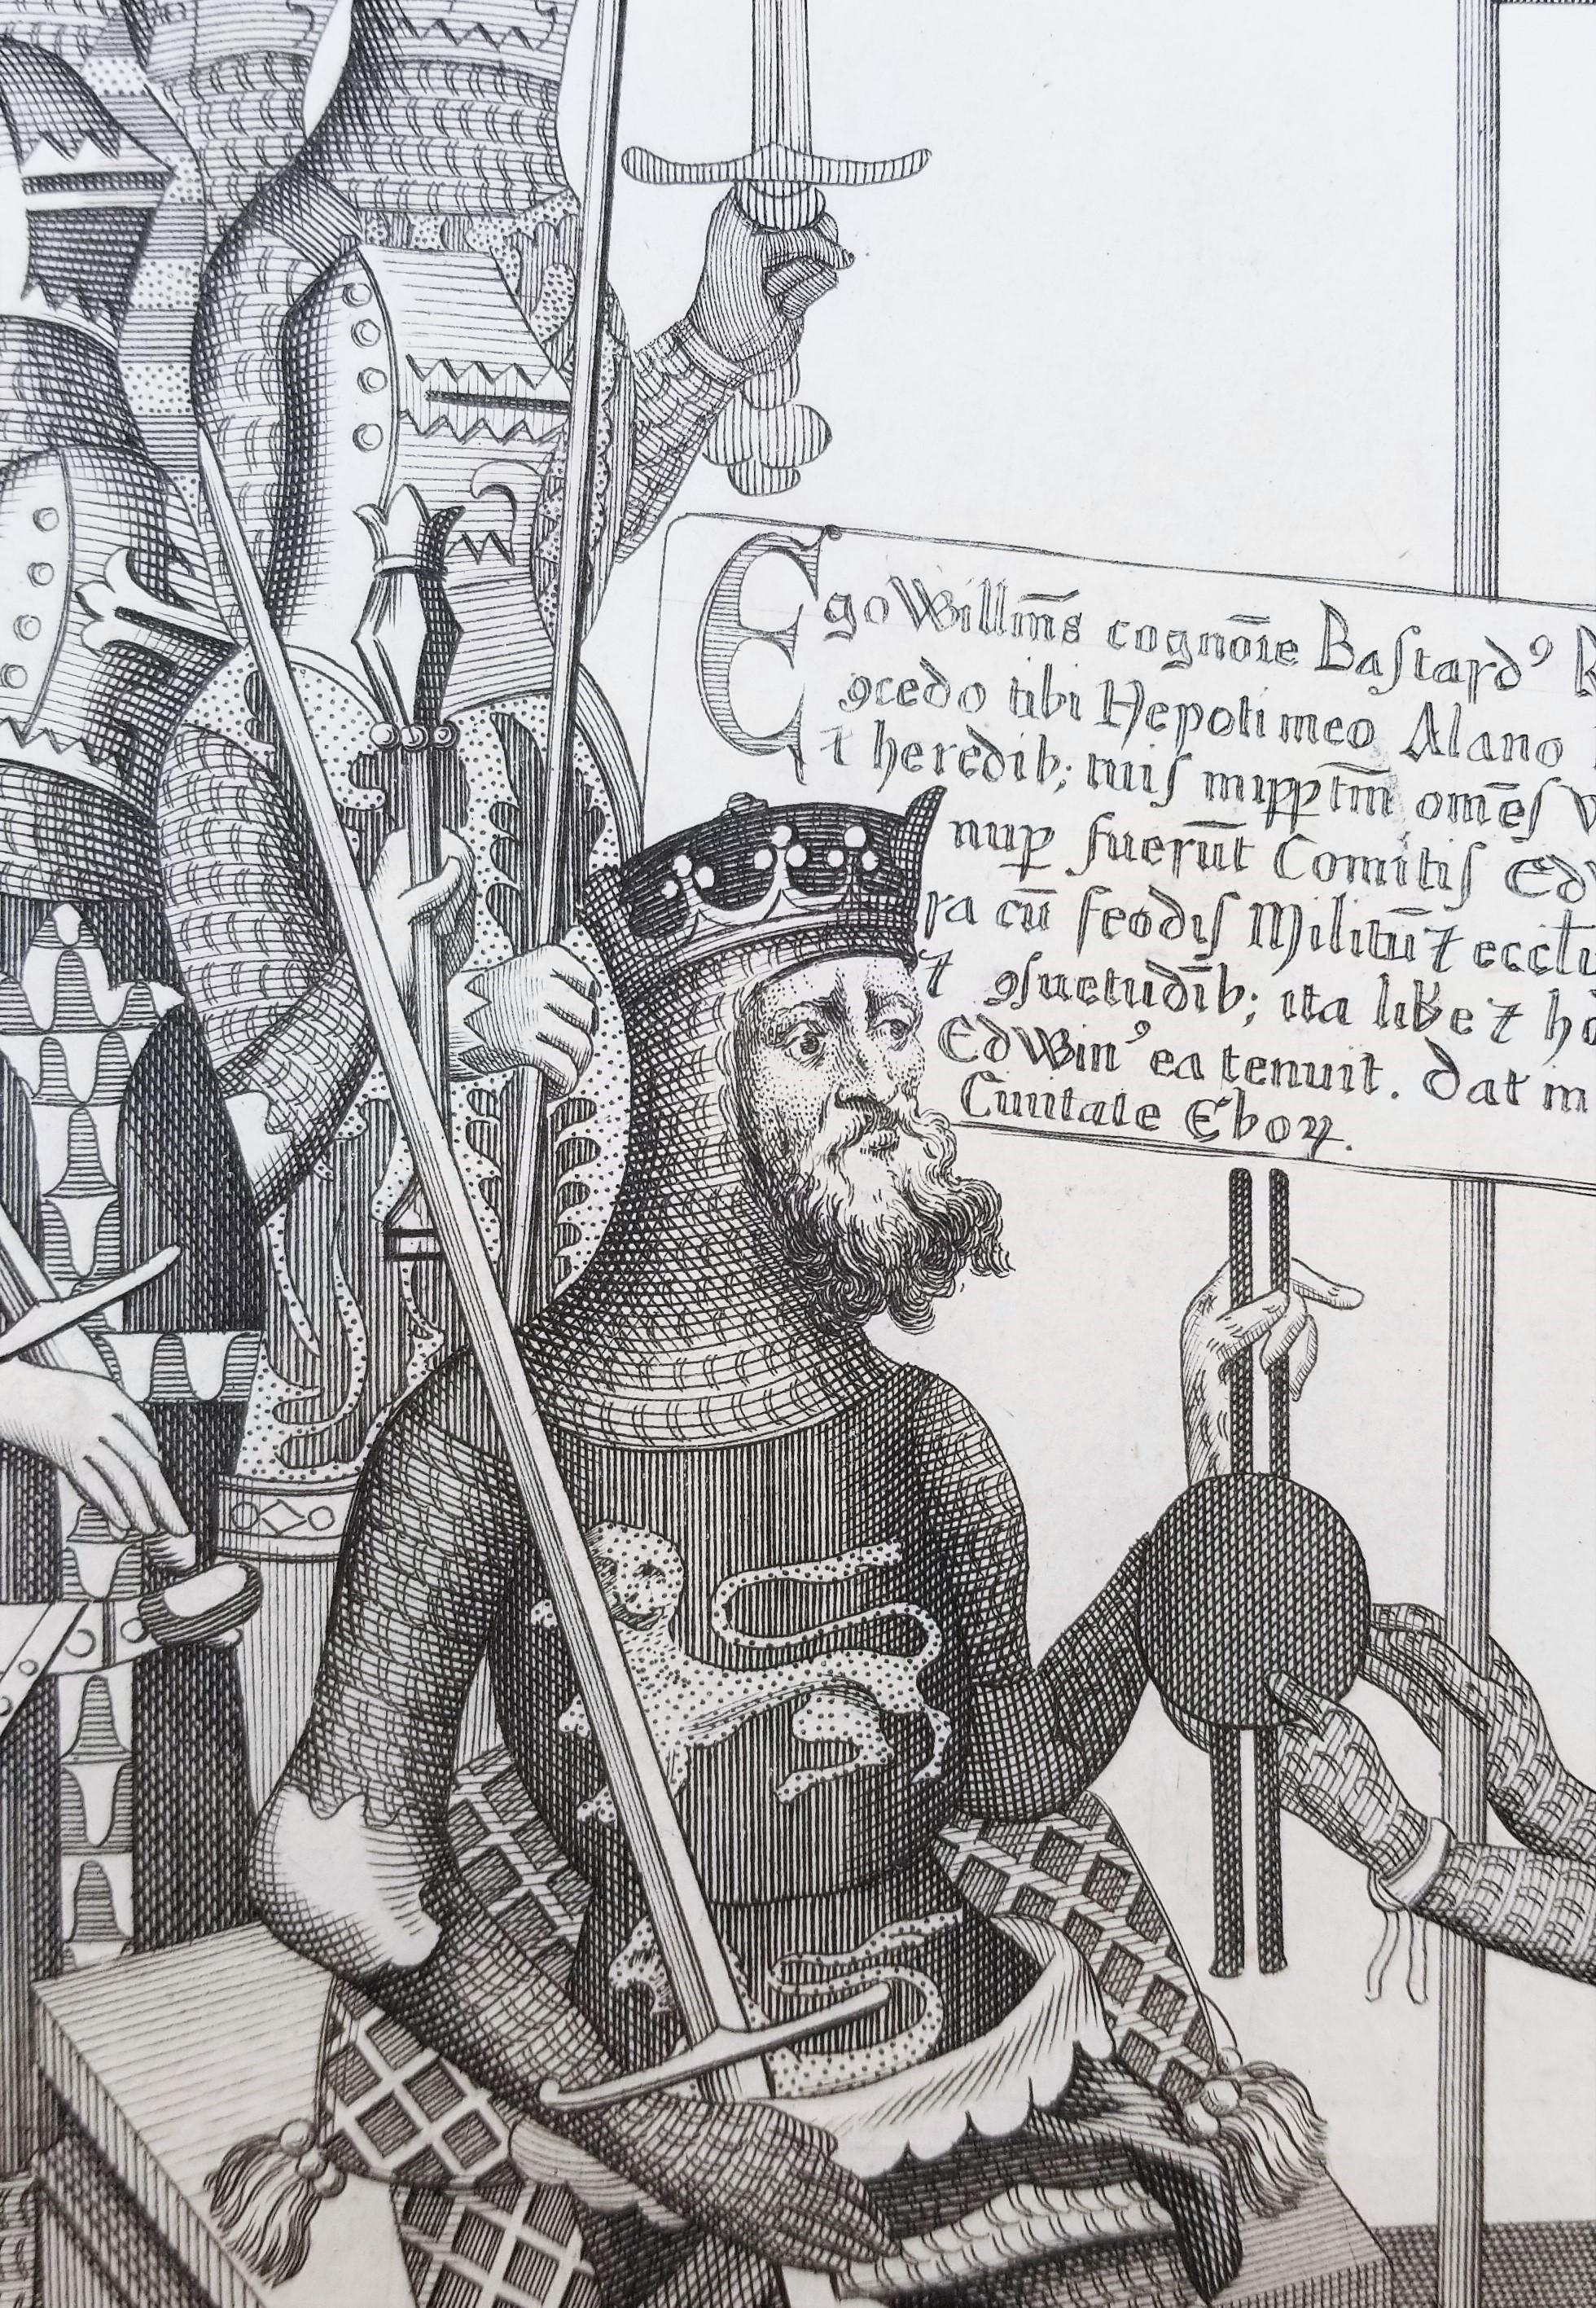 Ego Willm̄s cognōīe Bastardꝰ R
ꝯcedo tibi Nepoti meo Alano
⁊ heredib; tuis imꝑpetm̄ om̄es v
nuꝑ fuerūt Comitis Edw
ra cū feodis Militū ⁊ eccl̄i
⁊ ꝯsuetudīb; ita libe ⁊ ho
Edwinꝰ ea tenuit. Dat in
Ciuitate Eboꝝ.